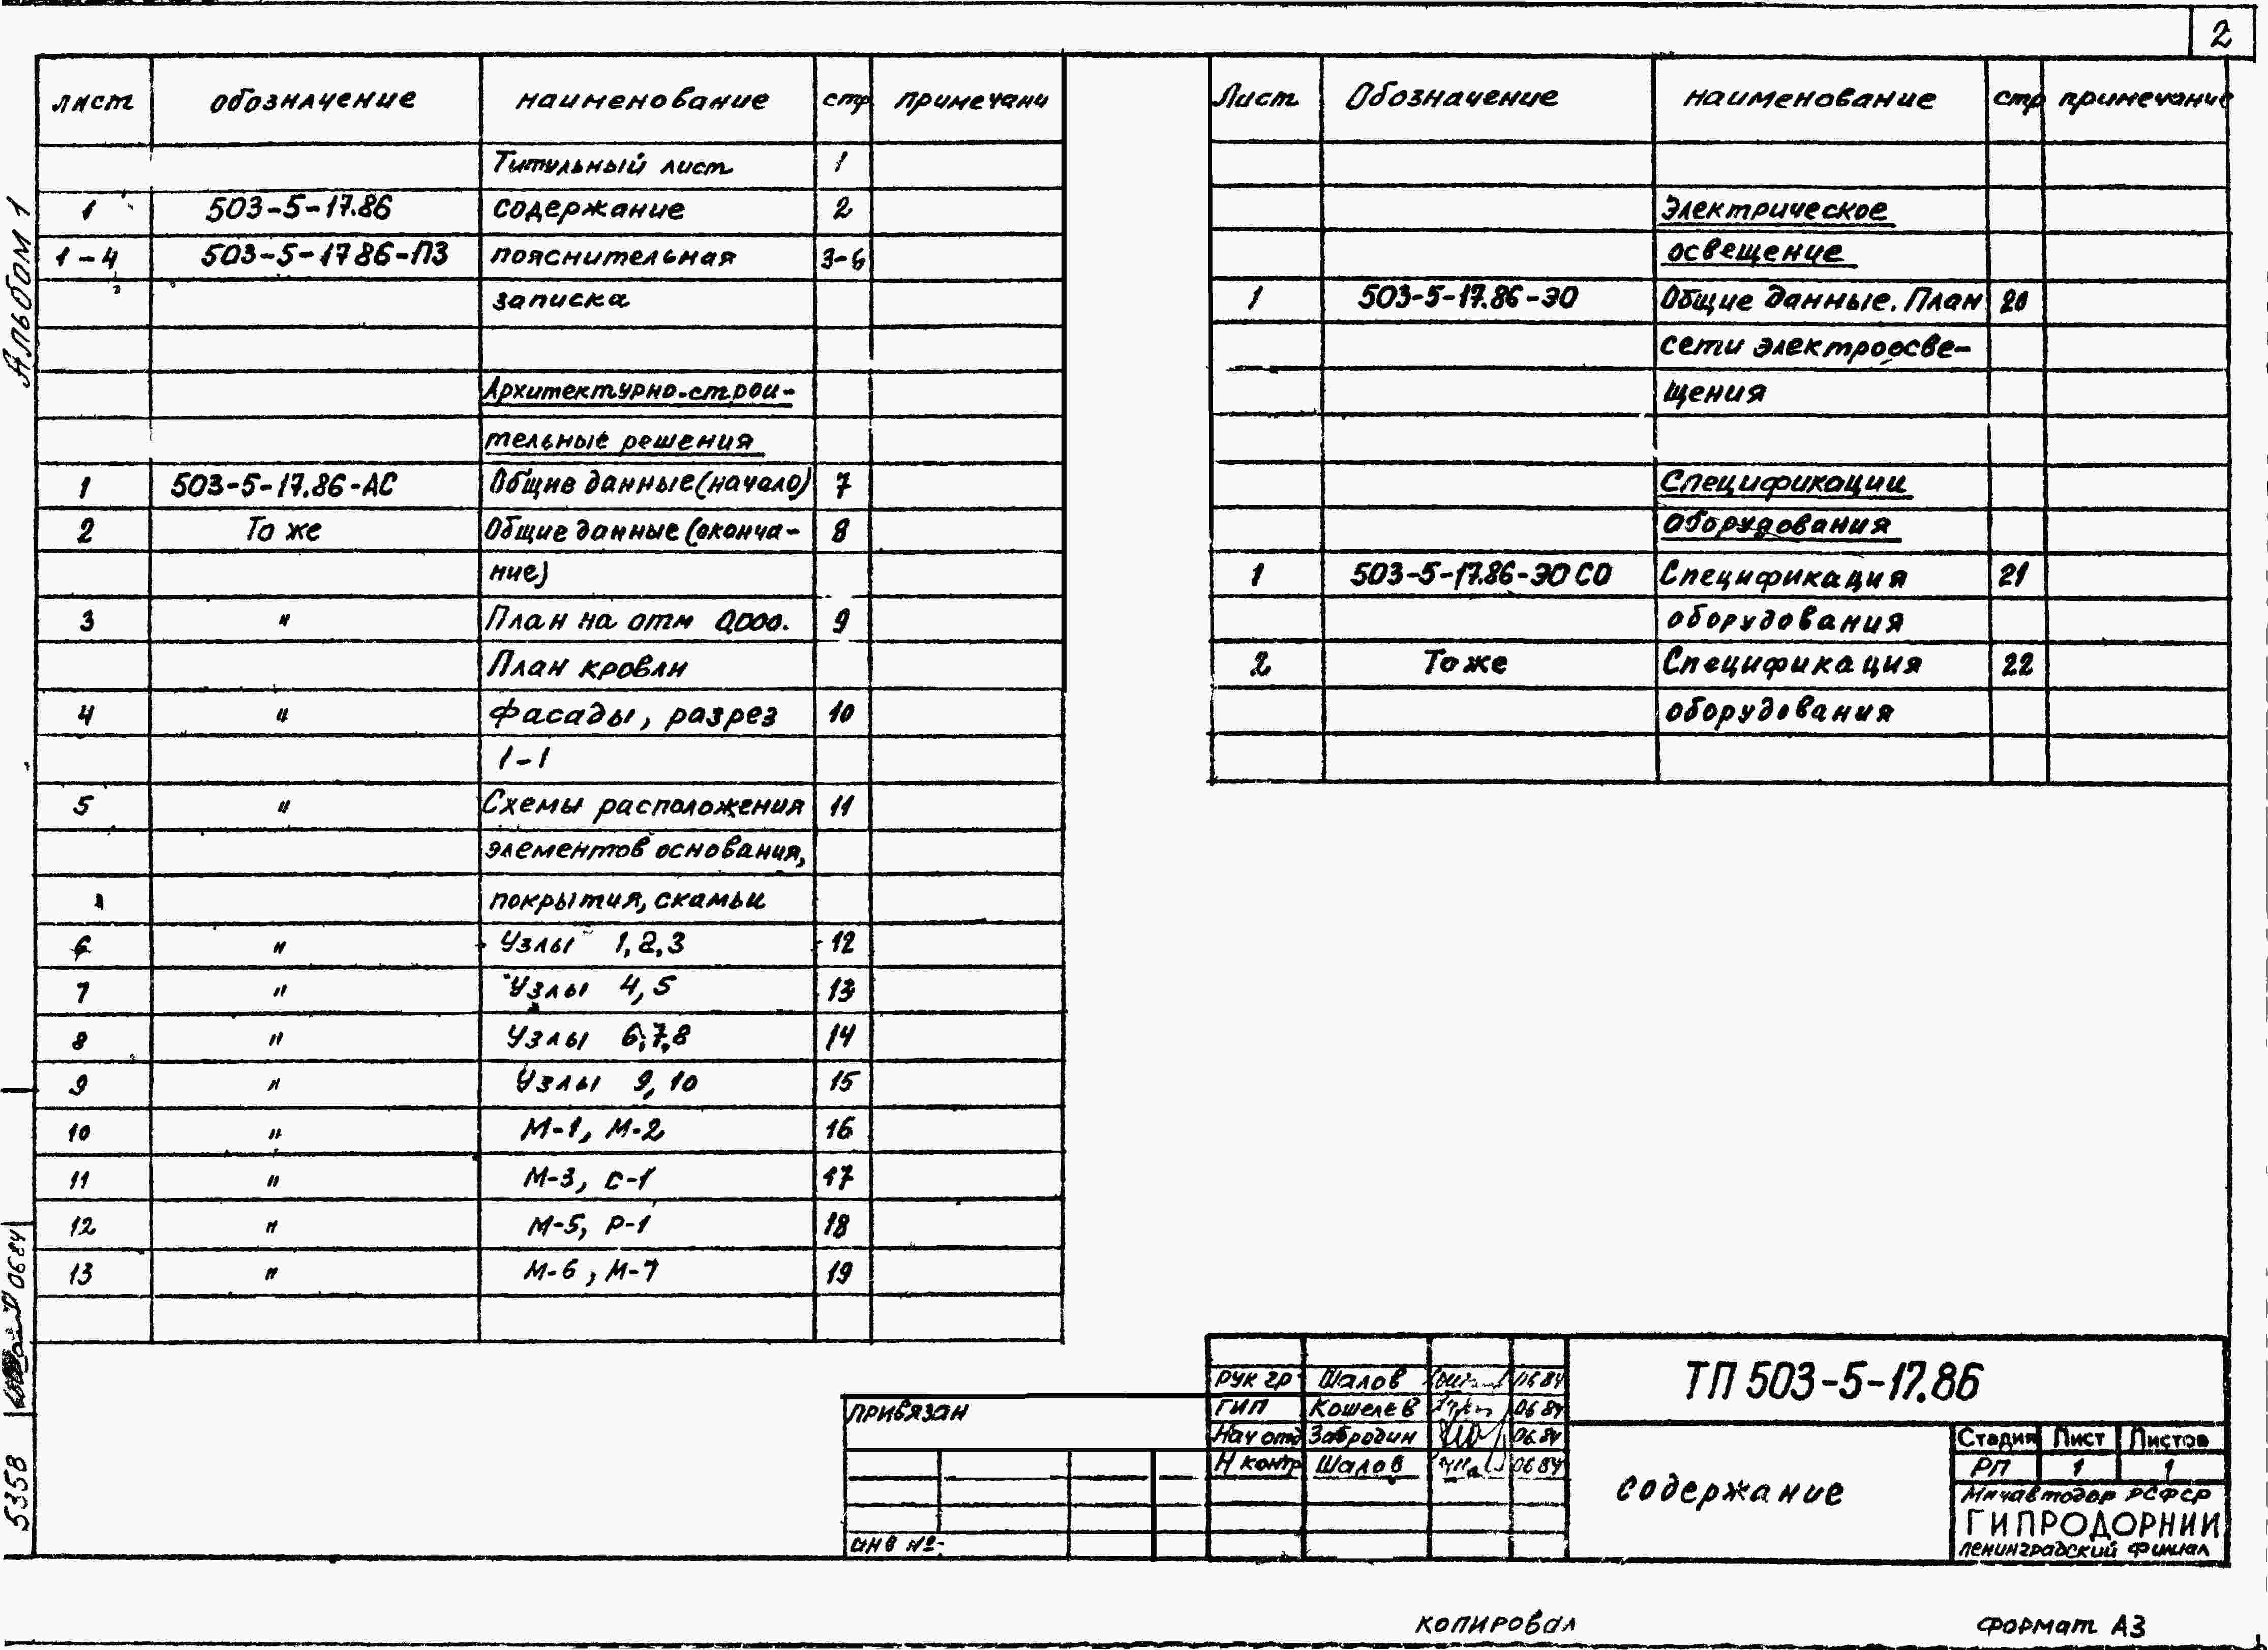 2
Альбом 1
лист обозначение наименование стр примечани
Титульный лист 1
1 503-5-17.86 содержание 2
1-4 503-5-1786-ПЗ пояснительная 3-6
записка
Архитектурно-строи-
тельные решения
1 503-5-17.86-АС Общие данные (начало) 7
2 То же Общие данные (оконча- 8
ние)
3 " План на отм 0,000. 9
План кровли
4 " Фасады, разрез 10
1-1
5 " Схемы расположения 11
элементов основания,
покрытия, скамьи
6 " Узлы 1,2,3 12
7 " Узлы 4,5 13
8 " Узлы 6,7,8 14
9 " Узлы 9,10 15
10 " М-1, М-2 16
11 " М-3, С-1 17
12 " М-5, Р-1 18
13 " М-6, М-7 19
Лист Обозначение наименование стр примечание
Электрическое
освещение
1 503-5-17.86-ЭО Общие данные. План 20
сети электроосве-
щения
Спецификации
оборудования
1 503-5-17.86-ЭО СО Спецификация 21
оборудования
2 То же Спецификация 22
оборудования
0684
5358
привязан
инв №
рук гр Шалов 06 84
ГИП Кошелев 06 84
Нач отд Забродин 06.84
Н контр Шалов 06 84
ТП 503-5-17.86
содержание
Стадия Лист Листов
РП 1 1
Минавтодор РСФСР
ГИПРОДОРНИИ
ленинградский филиал
копировал
формат А3